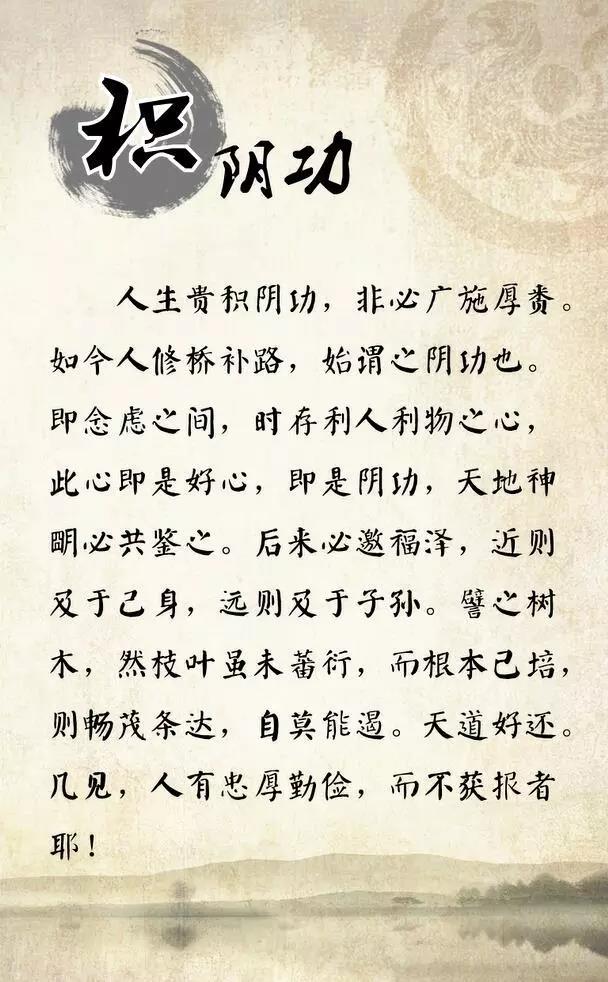 积阴功
人生贵积阴功，非必广施厚赉。
如今人修桥补路，始谓之阴功也。
即念虑之间，时存利人利物之心，
此心即是好心，即是阴功，天地神
明必共鉴之。后来必邀福泽，近则
及于己身，远则及于子孙。譬之树
木，然枝叶虽未蕃衍，而根本已培，
则畅茂条达，自莫能遏。天道好还。
几见，人有忠厚勤俭，而不获报者
耶！